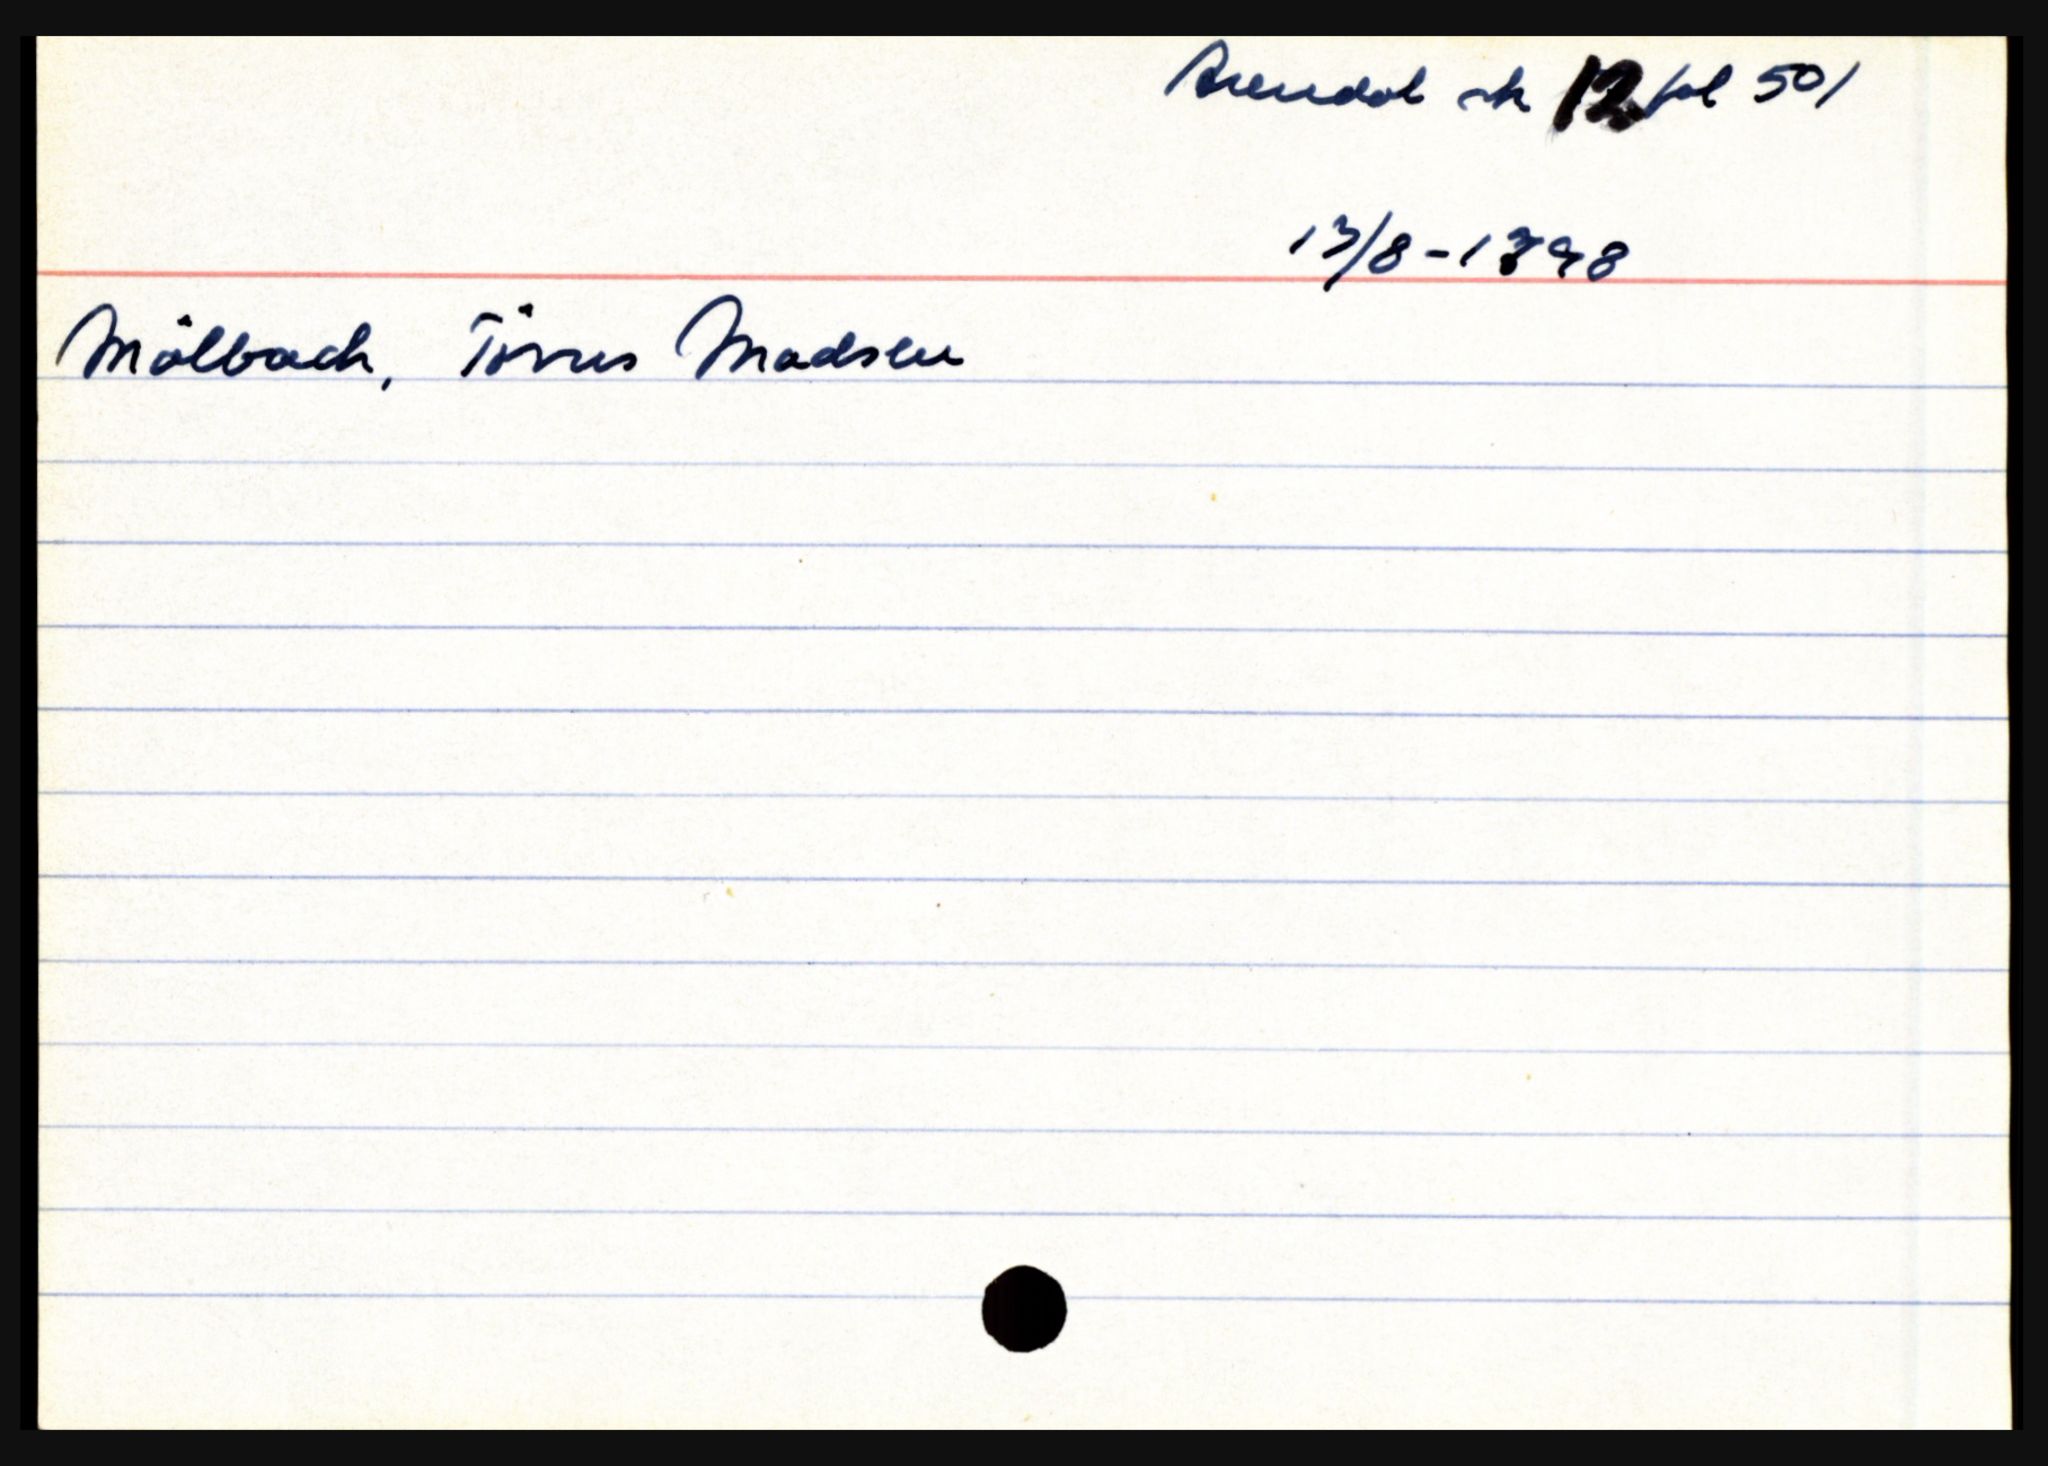 Arendal sk 12 fol 501
13/8-1798
Mølbach, Tønnes Madsen